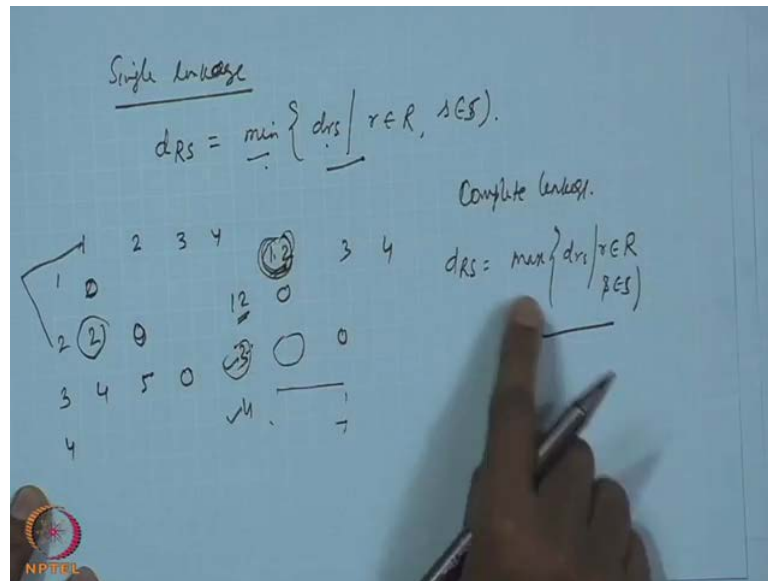 Single linkage
dRS = min { drs | r ∈ R, s ∈ S }.
Complete linkage.
dRS = max { drs | r ∈ R
s ∈ S }
1 2 3 4
1 0
2 2 0
3 4 5 0
4
12 3 4
12 0
3 0
4
NPTEL